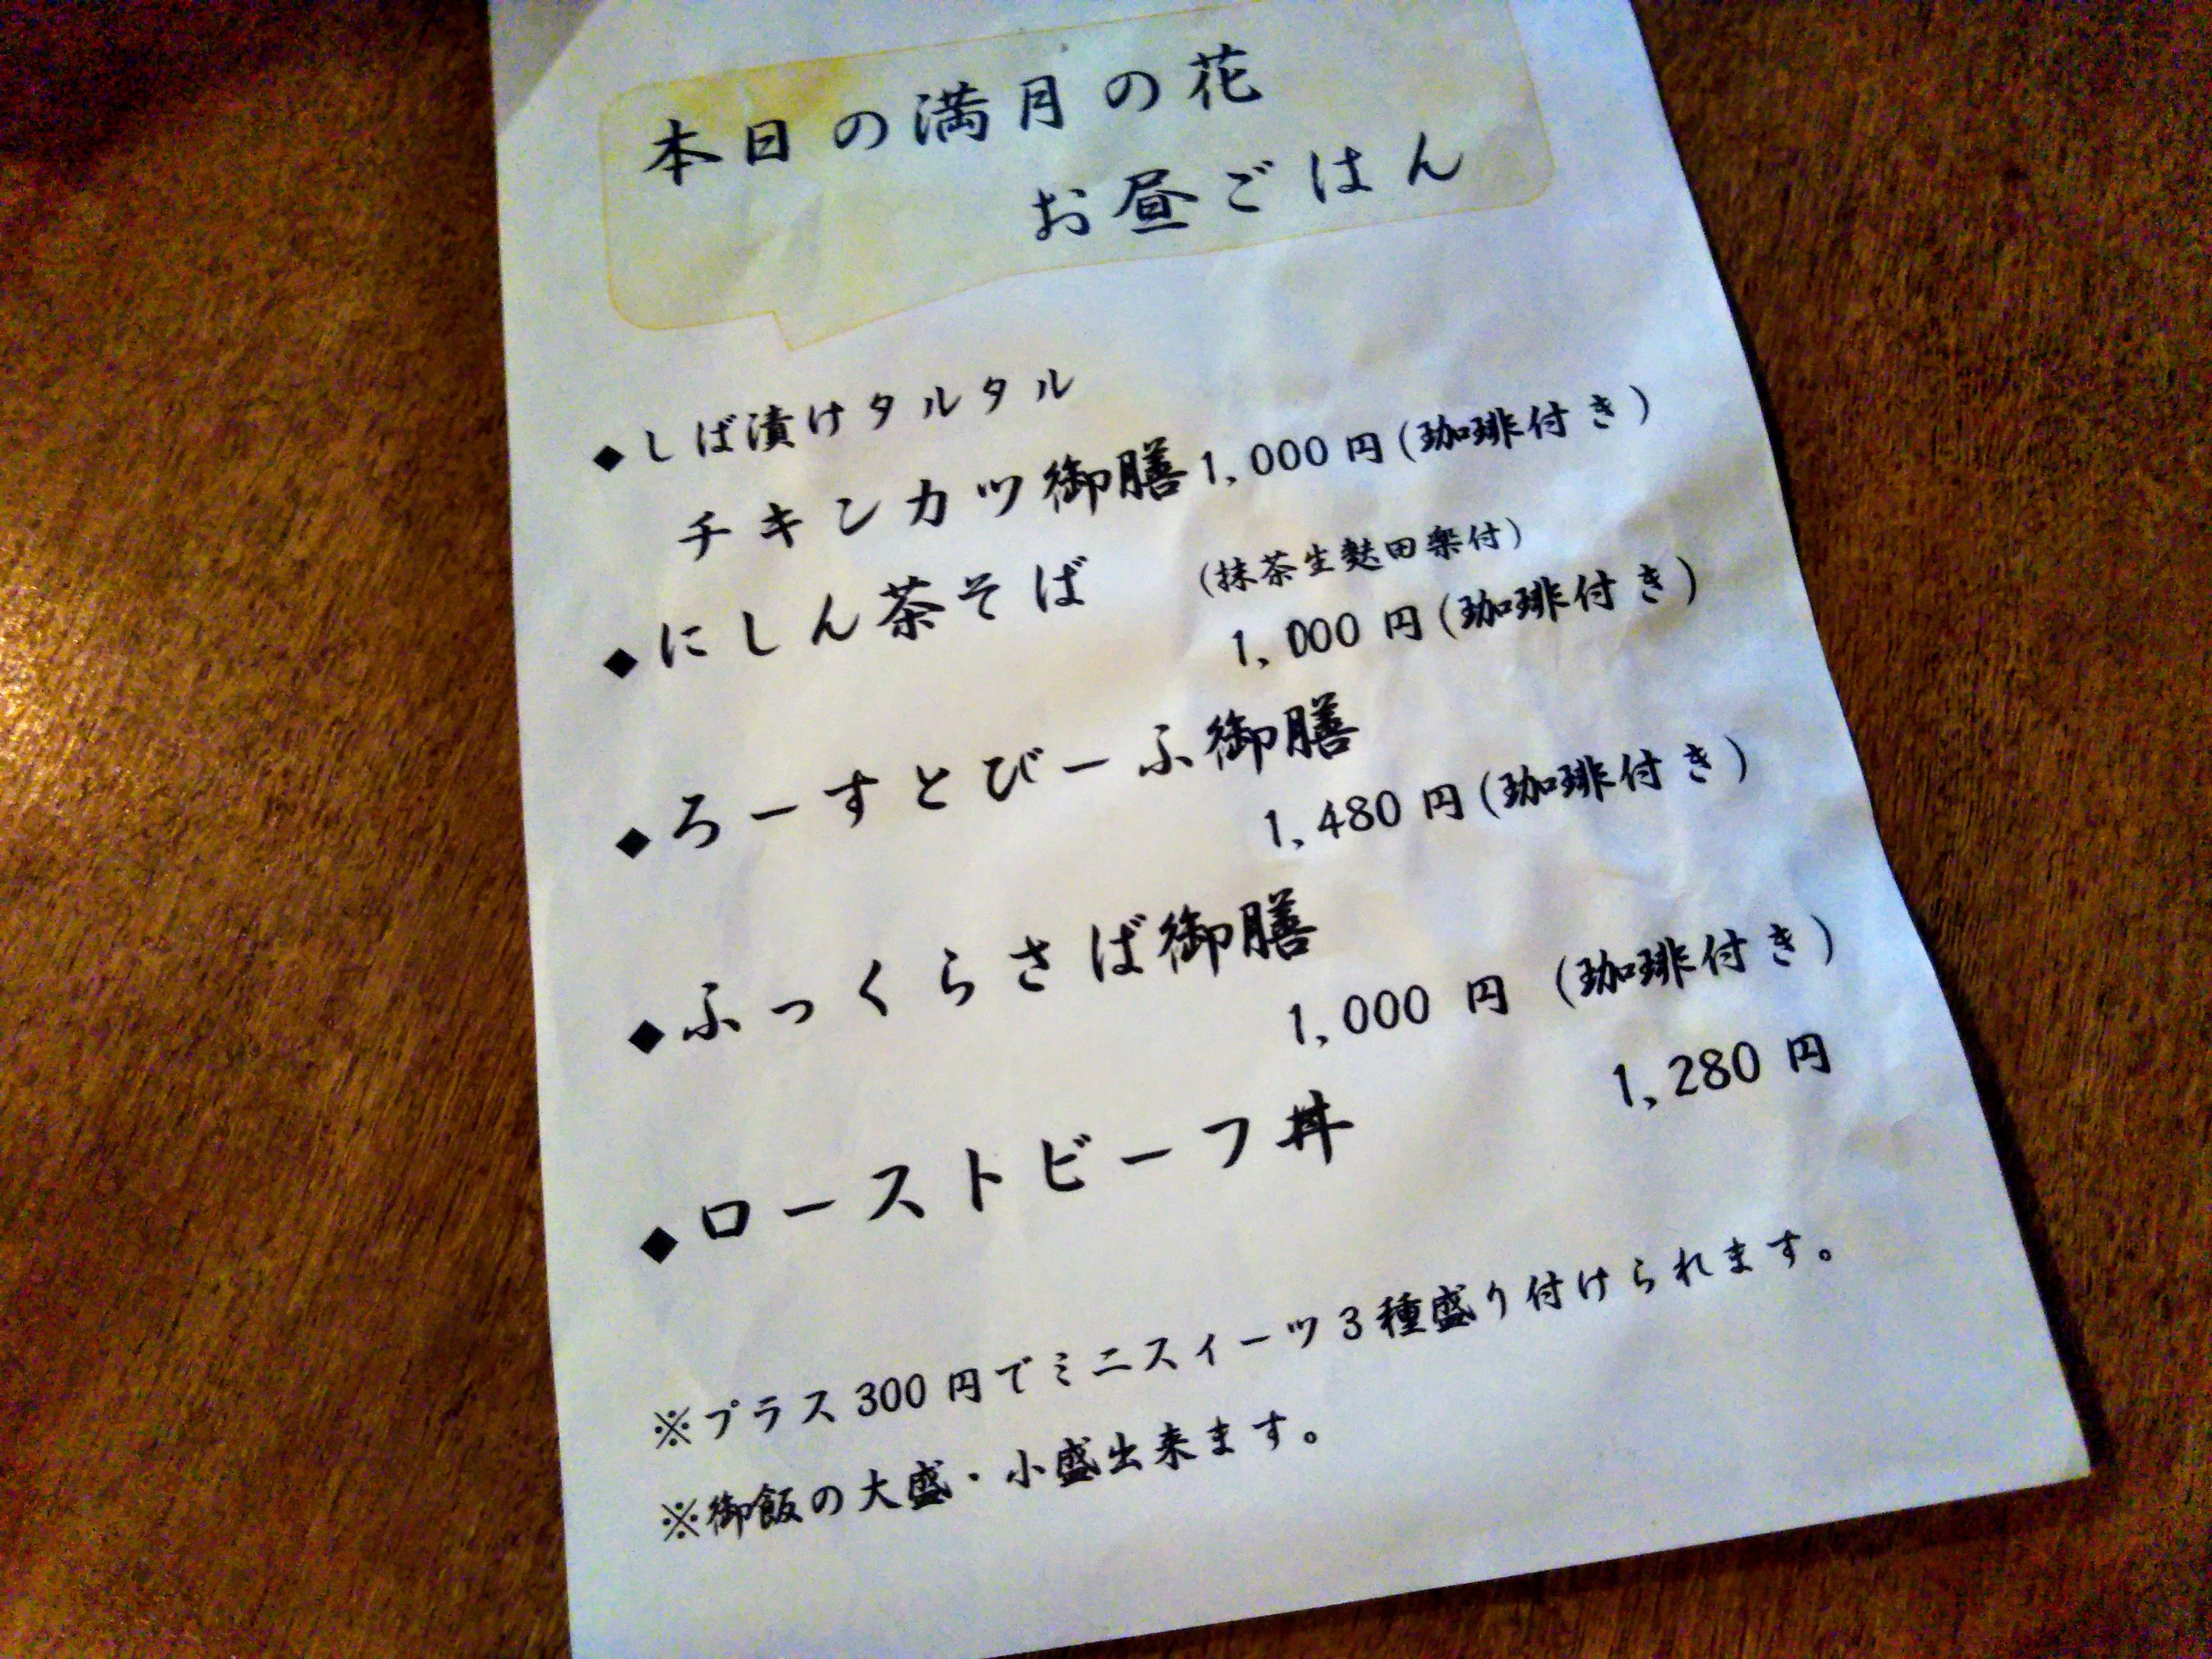 本日の満月の花
お昼ごはん
◆しば漬けタルタル
チキンカツ御膳1,000円(珈琲付き)
◆にしん茶そば (抹茶生麩田楽付)
1,000円(珈琲付き)
◆ろーすとびーふ御膳
1,480円(珈琲付き)
◆ふっくらさば御膳
1,000円 (珈琲付き)
◆ローストビーフ丼 1,280円
※プラス300円でミニスイーツ3種盛り付けられます。
※御飯の大盛・小盛出来ます。